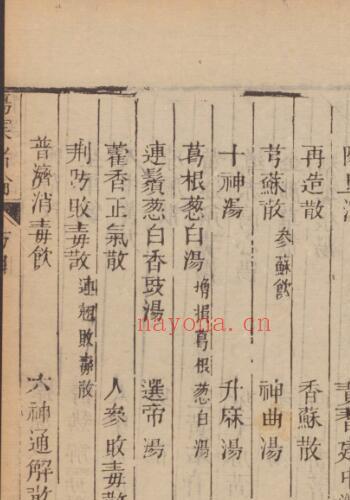 建中
再造散 香蘇散
芎蘇散 參蘇飲 神曲湯
十神湯 升麻湯
葛根葱白湯 增損葛根葱白湯
連鬚葱白香豉湯 選帝湯
藿香正氣散 人參敗毒散
荊防敗毒散 連翹敗毒散
普濟消毒飲 六神通解散
nayona.cn